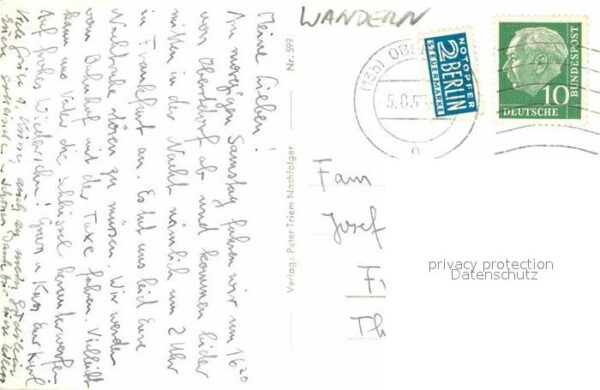 WANDERN
Meine Lieben!
Am morgigen Samstag fahren wir um 16²⁰
von Oberstdorf ab und kommen leider
mitten in der Nacht nämlich um 2 Uhr
in Frankfurt an. Es tut uns leid Eure
Nachtruhe stören zu müssen. Wir werden
vom Bahnhof mit der Taxe fahren. Vielleicht
kann uns Vater die Schlüssel herunterwerfen.
Auf frohes Wiedersehen! Gruss u Kuss Eure Kurt
Viele Grüsse u. Küsse auch an
Nr. 599
Verlag: Peter Triem Nachfolger
NOTOPFER
2 BERLIN
STEUERMARKE
(13b) OBE
5.8.5
DEUTSCHE
BUNDESPOST
10
Fam
Josef
F
Th
privacy protection
Datenschutz